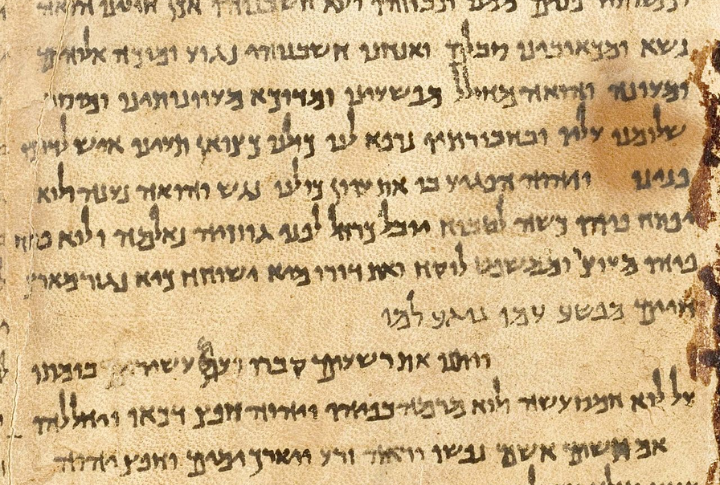 ונבוזהו ולוא חשבנוהו אכן חוליינו הואה
נשא ומכאובינו סבלם ואנחנו חשבנוהו נגוע ומוכה אלוהים
ומעונה והואה מחולל מפשעינו ומדוכא מעוונותינו ומוסר
שלומנו עליו ובחבורתיו נרפא לנו כולנו כצואן תעינו איש לדרכו
פנינו ויהוה הפגיע בו את עוון כולנו נגש והואה נענה ולוא
יפתח פיהו כשה לטבוח יובל כרחל לפני גוזזיה נאלמה ולוא פתח
פיהו מעוצר וממשפט לוקח ואת דורו מיא ישוחח כיא נגזר מארץ
חיים מפשע עמו נוגע למו
ויתנו את רשעים קברו ועם בומתו
על לוא חמס עשה ולוא מרמה בפיהו ויהוה חפץ דכאו ויחללהו
אם תשים אשם נפשו יראה זרע ויארך ימים וחפץ יהוה